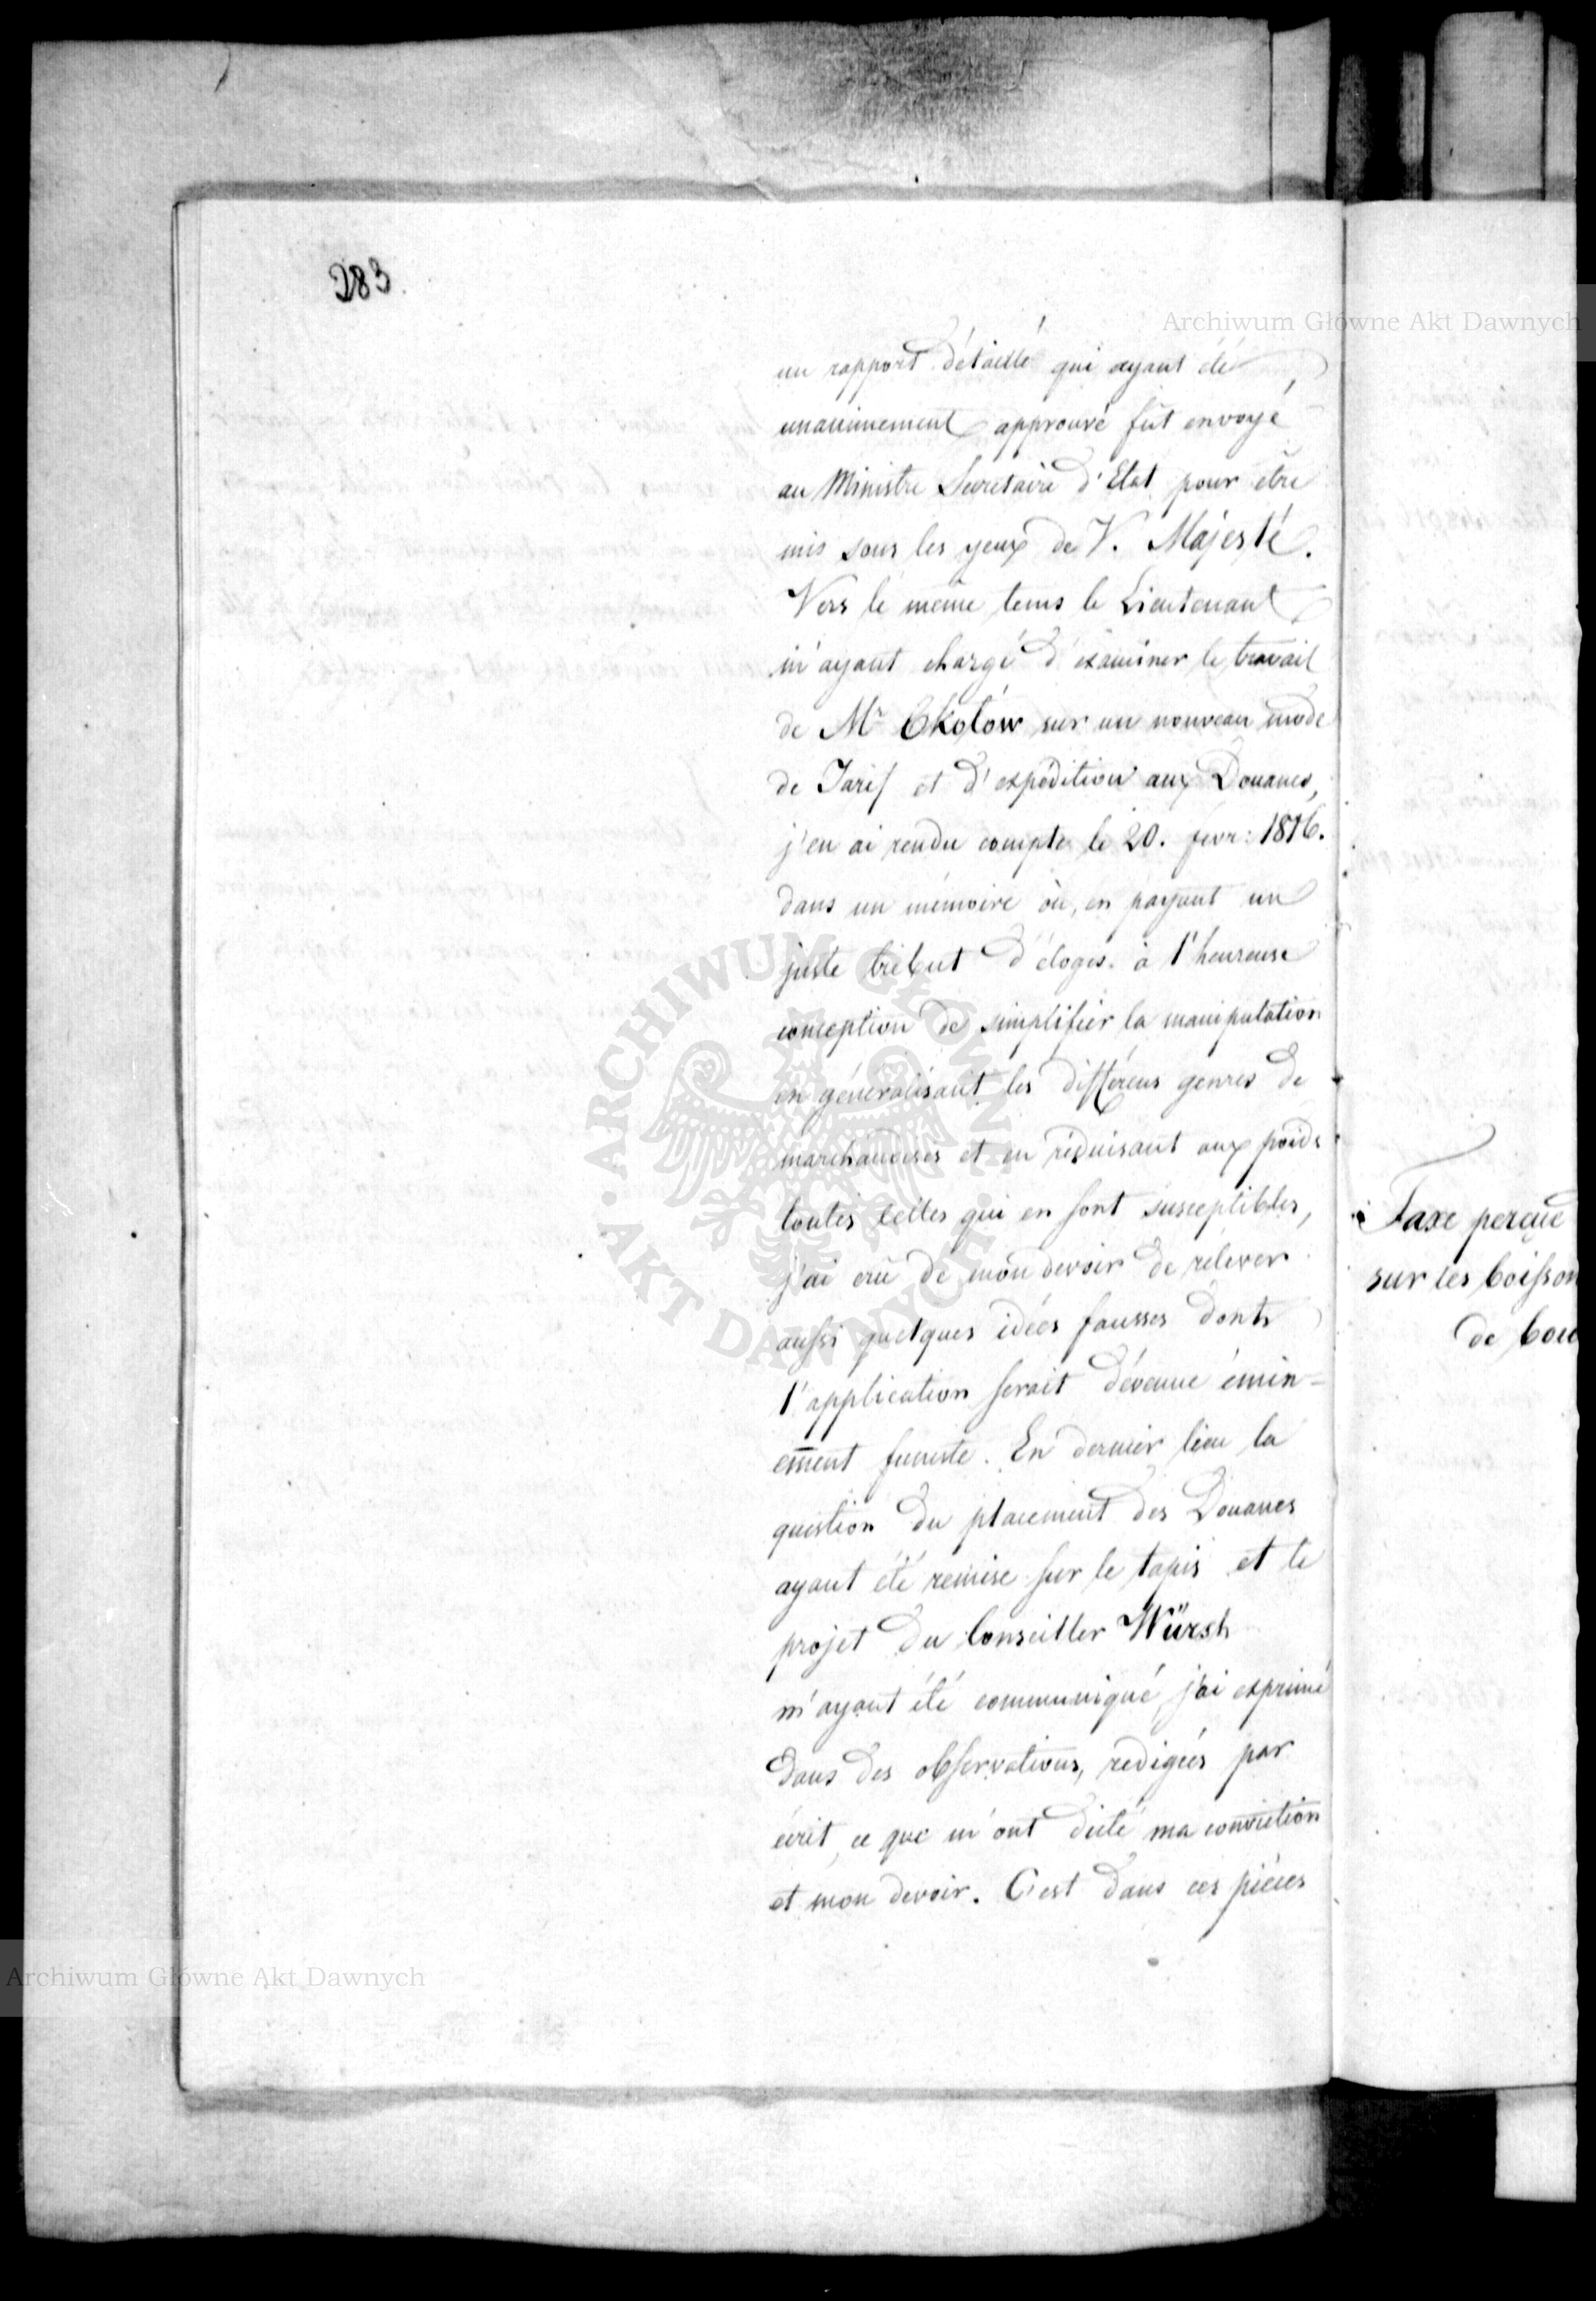 283.
un rapport détaillé qui ayant été
unanimement approuvé fût envoyé
au Ministre Secretaire d'Etat pour être
mis sous les yeux de V. Majesté.
Vers le même tems le Lieutenant
m'ayant chargé d'examiner le travail
de Mr Okołów sur un nouveau mode
de Tarif et d'expédition aux Douanes,
j'en ai rendu compte le 20. fevr: 1816.
dans un mémoire où, en payant un
juste tribut d'éloges à l'heureuse
conception de simplifier la manipulation
en généralisant les différens genres de
marchandises et en réduisant aux poids
toutes celles qui en sont susceptibles,
j'ai crû de mon devoir de rélever
aussi quelques idées fausses dont
l'application serait dévenue émin=
emment funeste. En dernier lieu la
question du placement des Douanes
ayant été remise sur le tapis et le
projet du Conseiller Würsh
m'ayant été communiqué, j'ai exprimé
dans des observations, redigées par
écrit, ce que m'ont dicté ma conviction
et mon devoir. C'est dans ces pièces
Taxe perçue
sur les boisson
de bou
Archiwum Główne Akt Dawnych
ARCHIWUM GŁÓWNE AKT DAWNYCH
Archiwum Główne Akt Dawnych